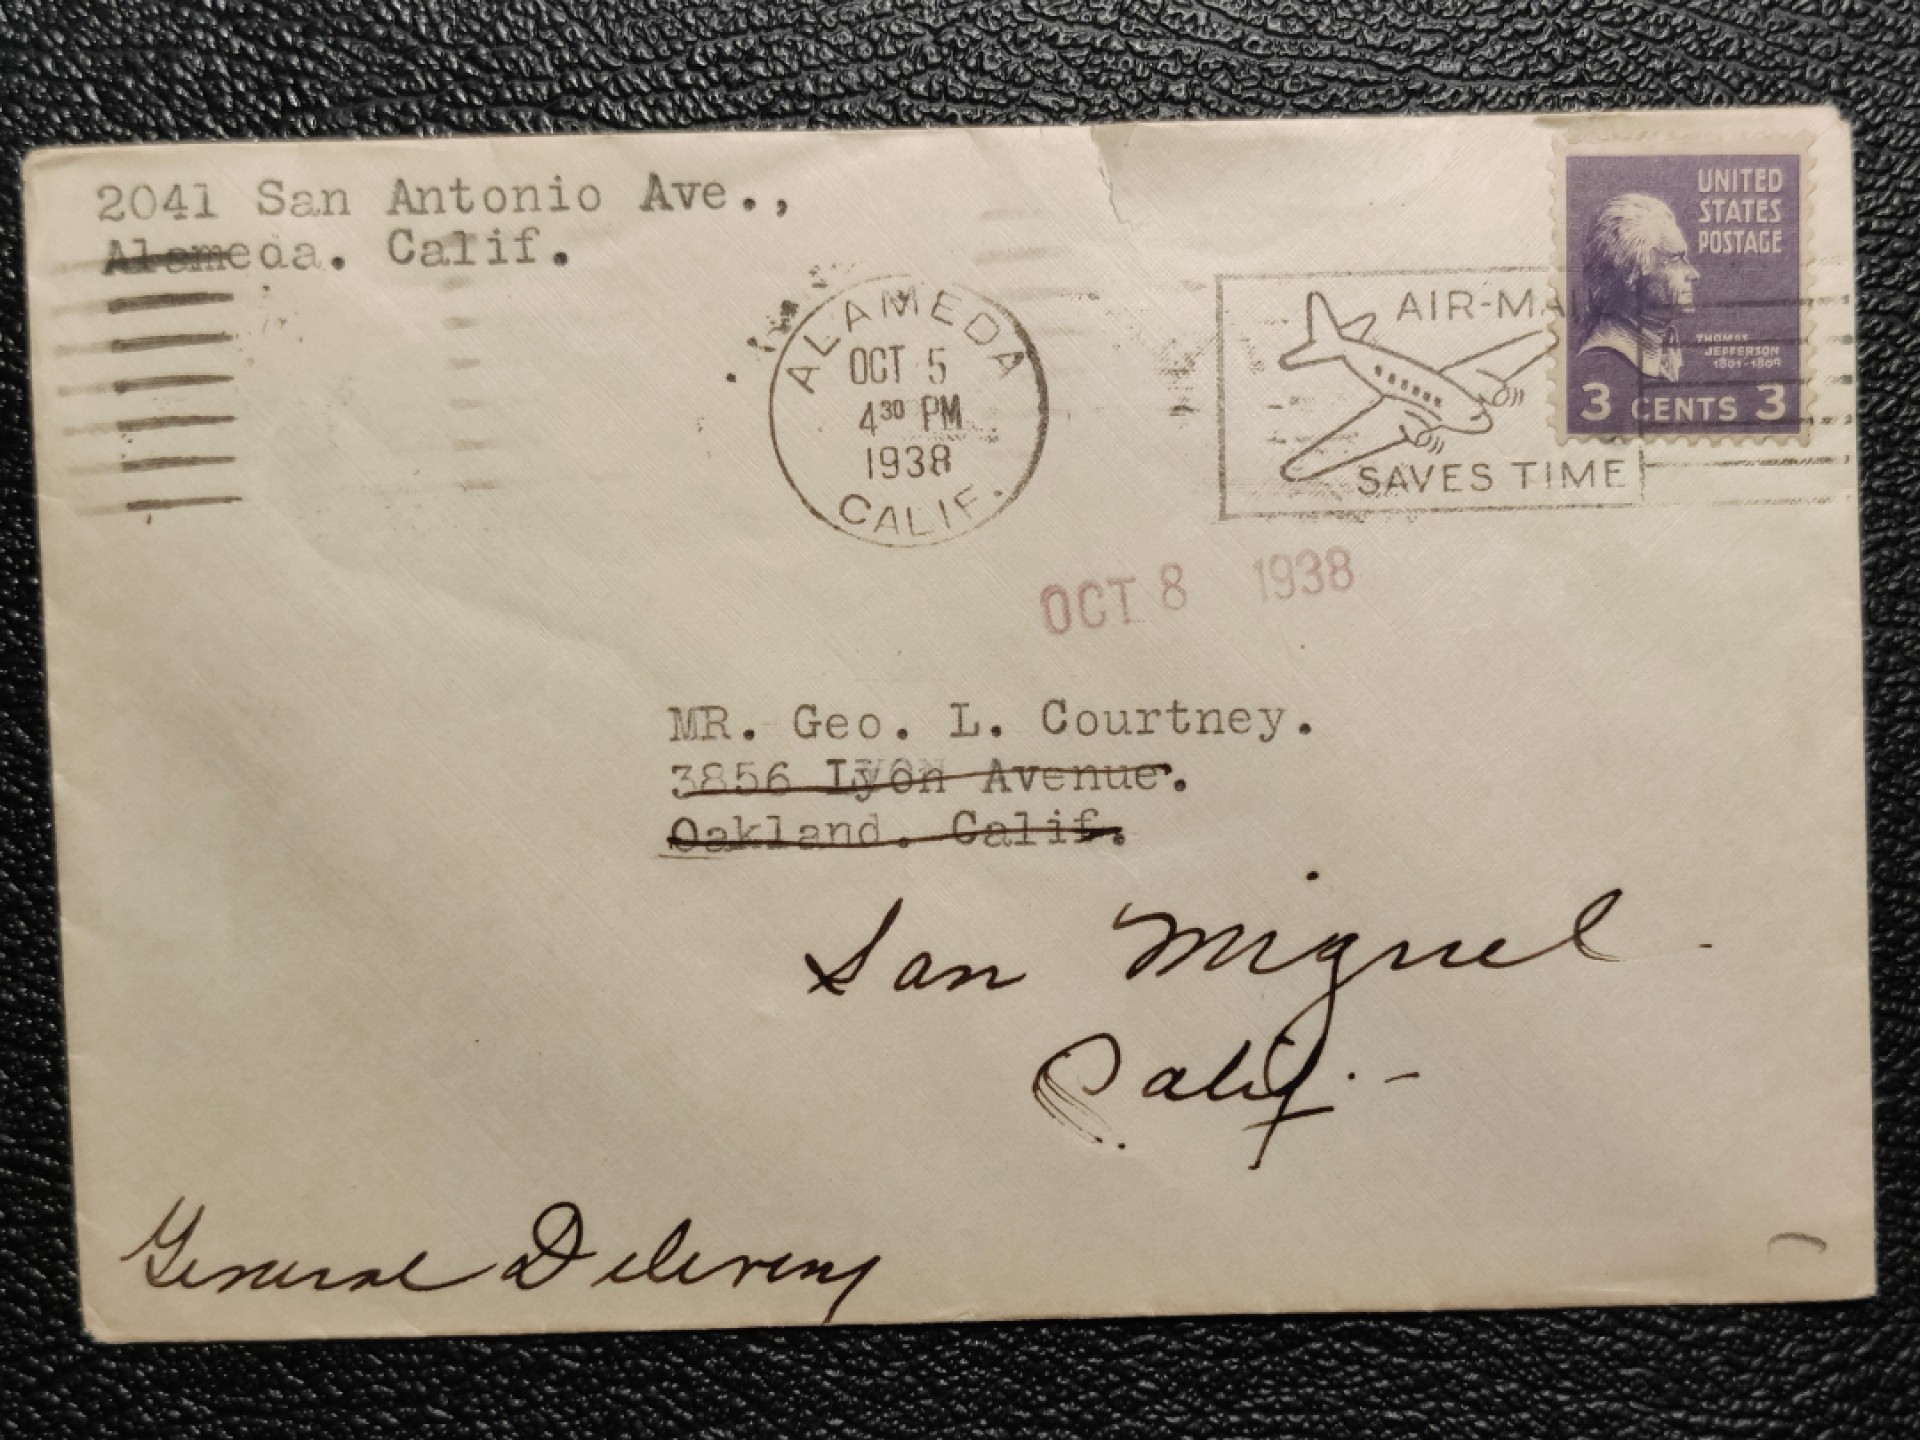 2041 San Antonio Ave.,
Alameda. Calif.
ALAMEDA
OCT 5
4³⁰ PM
1938
CALIF.
AIR-MAI
SAVES TIME
UNITED
STATES
POSTAGE
THOMAS
JEFFERSON
1801-1809
3 CENTS 3
OCT 8 1938
MR. Geo. L. Courtney.
3856 Lyon Avenue.
Oakland. Calif.
San Miguel
Calif.
General Delivery